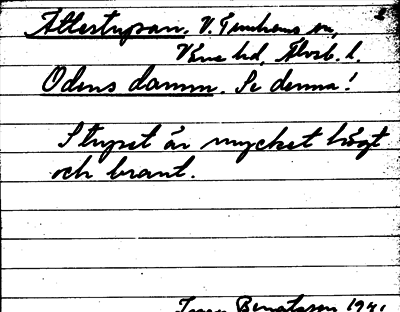 Ättestupan. V. Tunhems sn,
Väne hd, Älvsb. l.
Odens damm. Se denna!
Stupet är mycket högt
och brant.
Bengtsson 1941